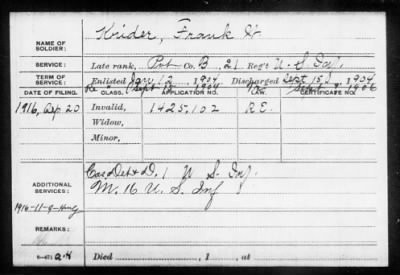 Krider, Frank
NAME OF
SOLDIER:
SERVICE: Late rank, Pvt Co. B, 21 Reg't U.S. Inf.
TERM OF
SERVICE: Enlisted Jan 12, 1904 Discharged Sept 15, 1904
Re " Sept 1904 " 1906
DATE OF FILING. CLASS. APPLICATION NO. CERTIFICATE NO.
1916, Sep 20 Invalid, 1425,102 R.E.
Widow,
Minor,
ADDITIONAL
SERVICES:
Cas Det & D. 1 U S Inf.
M. 16 U. S. Inf
1916-11-9
REMARKS:
Died , 1 , at